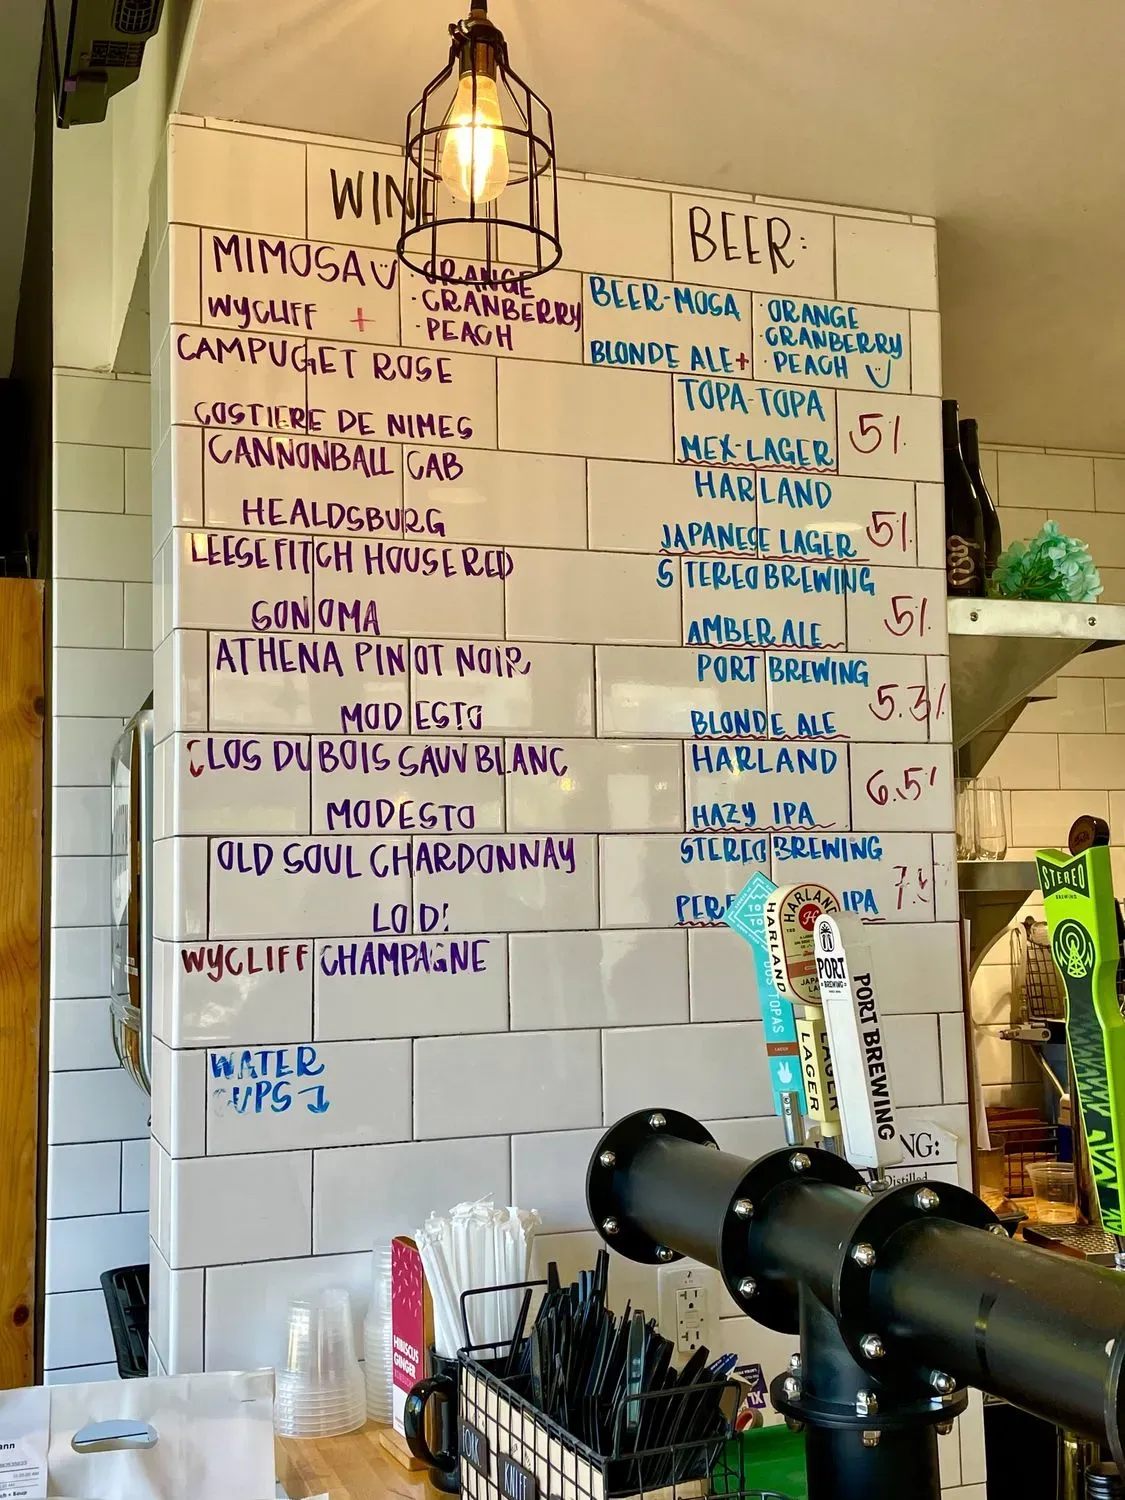 WINE
MIMOSA
WYCLIFF +
· ORANGE
· CRANBERRY
· PEACH
CAMPUGET ROSE
COSTIERE DE NIMES
CANNONBALL CAB
HEALDSBURG
LEESE FITCH HOUSE RED
SONOMA
ATHENA PINOT NOIR
MODESTO
CLOS DU BOIS SAUV BLANC
MODESTO
OLD SOUL CHARDONNAY
LODI
WYCLIFF CHAMPAGNE
WATER
CUPS
BEER:
BEER-MOSA
BLONDE ALE+
· ORANGE
· CRANBERRY
· PEACH
TOPA-TOPA
MEX-LAGER 5%
HARLAND
JAPANESE LAGER 5%
STEREO BREWING
AMBER ALE 5%
PORT BREWING
BLONDE ALE 5.3%
HARLAND
HAZY IPA 6.5%
STEREO BREWING
IPA
HARLAND
HARLAND
LAGER
LAGER
PORT
BREWING
PORT BREWING
STEREO
BREWING
NG:
Distilled
HIBISCUS
GINGER
FORK
KNIFE